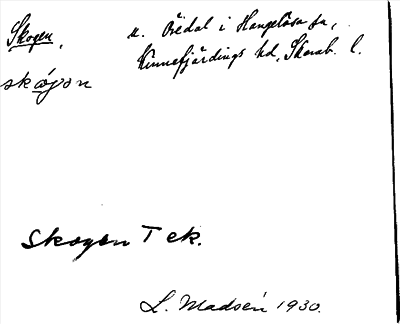 Skogen, u. Öredal i Hangelösa sn,
Kinnefjärdings hd, Skarab. l.
skógon
Skogen T ek.
L. Madsén 1930.